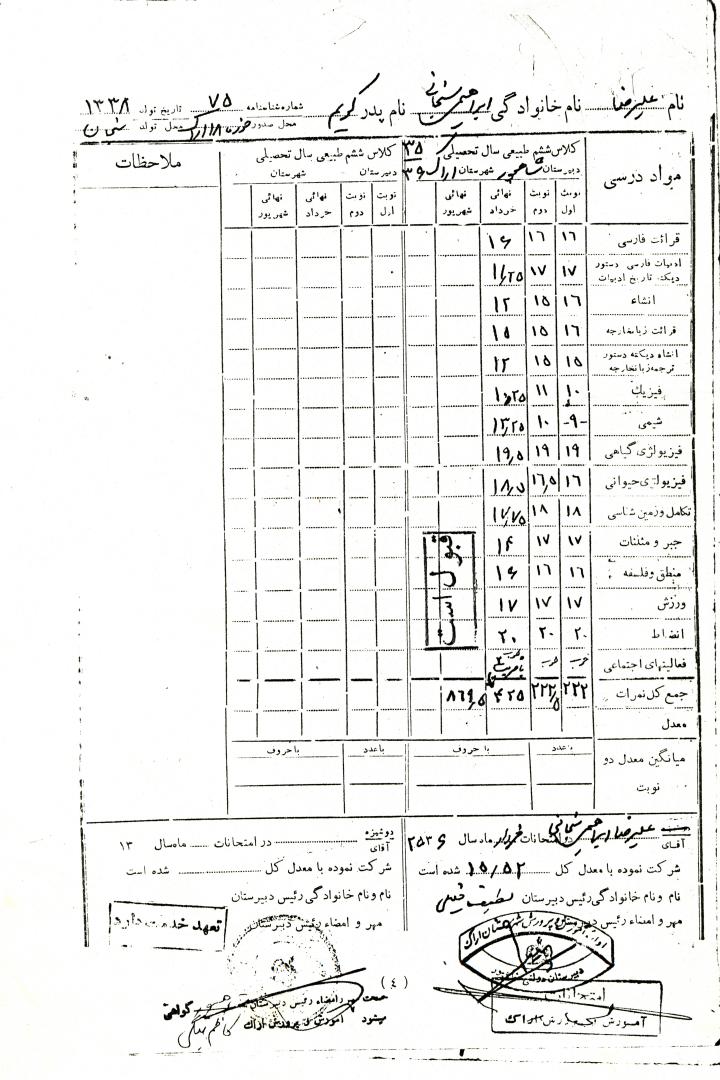 نام علیرضا نام خانوادگی ابراهیمی شمانی نام پدر کریم شماره شناسنامه ۷۵ تاریخ تولد ۱۳۳۸
محل صدور محل تولد
مواد درسی
کلاس ششم طبیعی سال تحصیلی ۳۵
دبیرستان شاهپور شهرستان اراک ۳۶
نوبت اول نوبت دوم نهائی خرداد نهائی شهریور
کلاس ششم طبیعی سال تحصیلی
دبیرستان شهرستان
نوبت اول نوبت دوم نهائی خرداد نهائی شهریور
ملاحظات
قرائت فارسی ۱۶ ۱۶ ۱۶
ادبیات فارسی دستور
دیکته تاریخ ادبیات ۱۷ ۱۷ ۱۱٫۲۵
انشاء ۱۶ ۱۵ ۱۲
قرائت زبانخارجه ۱۶ ۱۵ ۱۵
انشاء دیکته دستور
ترجمه زبانخارجه ۱۵ ۱۵ ۱۲
فیزیک ۱۰ ۱۱ ۱۰٫۲۵
شیمی -۹- ۱۰ ۱۳٫۲۵
فیزیولژی گیاهی ۱۹ ۱۹ ۱۹٫۵
فیزیولژی حیوانی ۱۶ ۱۶٫۵ ۱۸٫۵
تکامل وزمین شناسی ۱۸ ۱۸ ۱۷٫۷۵
جبر و مثلثات ۱۷ ۱۷ ۱۴
منطق وفلسفه ۱۶ ۱۶ ۱۶
ورزش ۱۷ ۱۷ ۱۷
انضباط ۲۰ ۲۰ ۲۰
قبول است
فعالیتهای اجتماعی خوب خوب خوب
با ضریب ۲
جمع کل نمرات ۲۲۲ ۲۲۲٫۵ ۴۲۵ ۸۶۹٫۵
معدل
میانگین معدل دو
نوبت
باعدد باحروف
باعدد باحروف
آقای علیرضا ابراهیمی شمانی در امتحانات خرداد ماه سال ۲۵۳۶
شرکت نموده با معدل کل ۱۵/۵۲ شده است
نام و نام خانوادگی رئیس دبیرستان
مهر و امضاء رئیس دبیرستان
دوشیزه
آقای در امتحانات ماه سال ۱۳
شرکت نموده با معدل کل شده است
نام ونام خانوادگی رئیس دبیرستان
مهر و امضاء رئیس دبیرستان
تعهد خدمت دارد
اداره آموزش و پرورش شهرستان اراک
دبیرستان دولتی
امتحانات
آموزش و پرورش اراک
(۴)
صحت مهر و امضاء رئیس دبیرستان گواهی
میشود آموزش و پرورش اراک